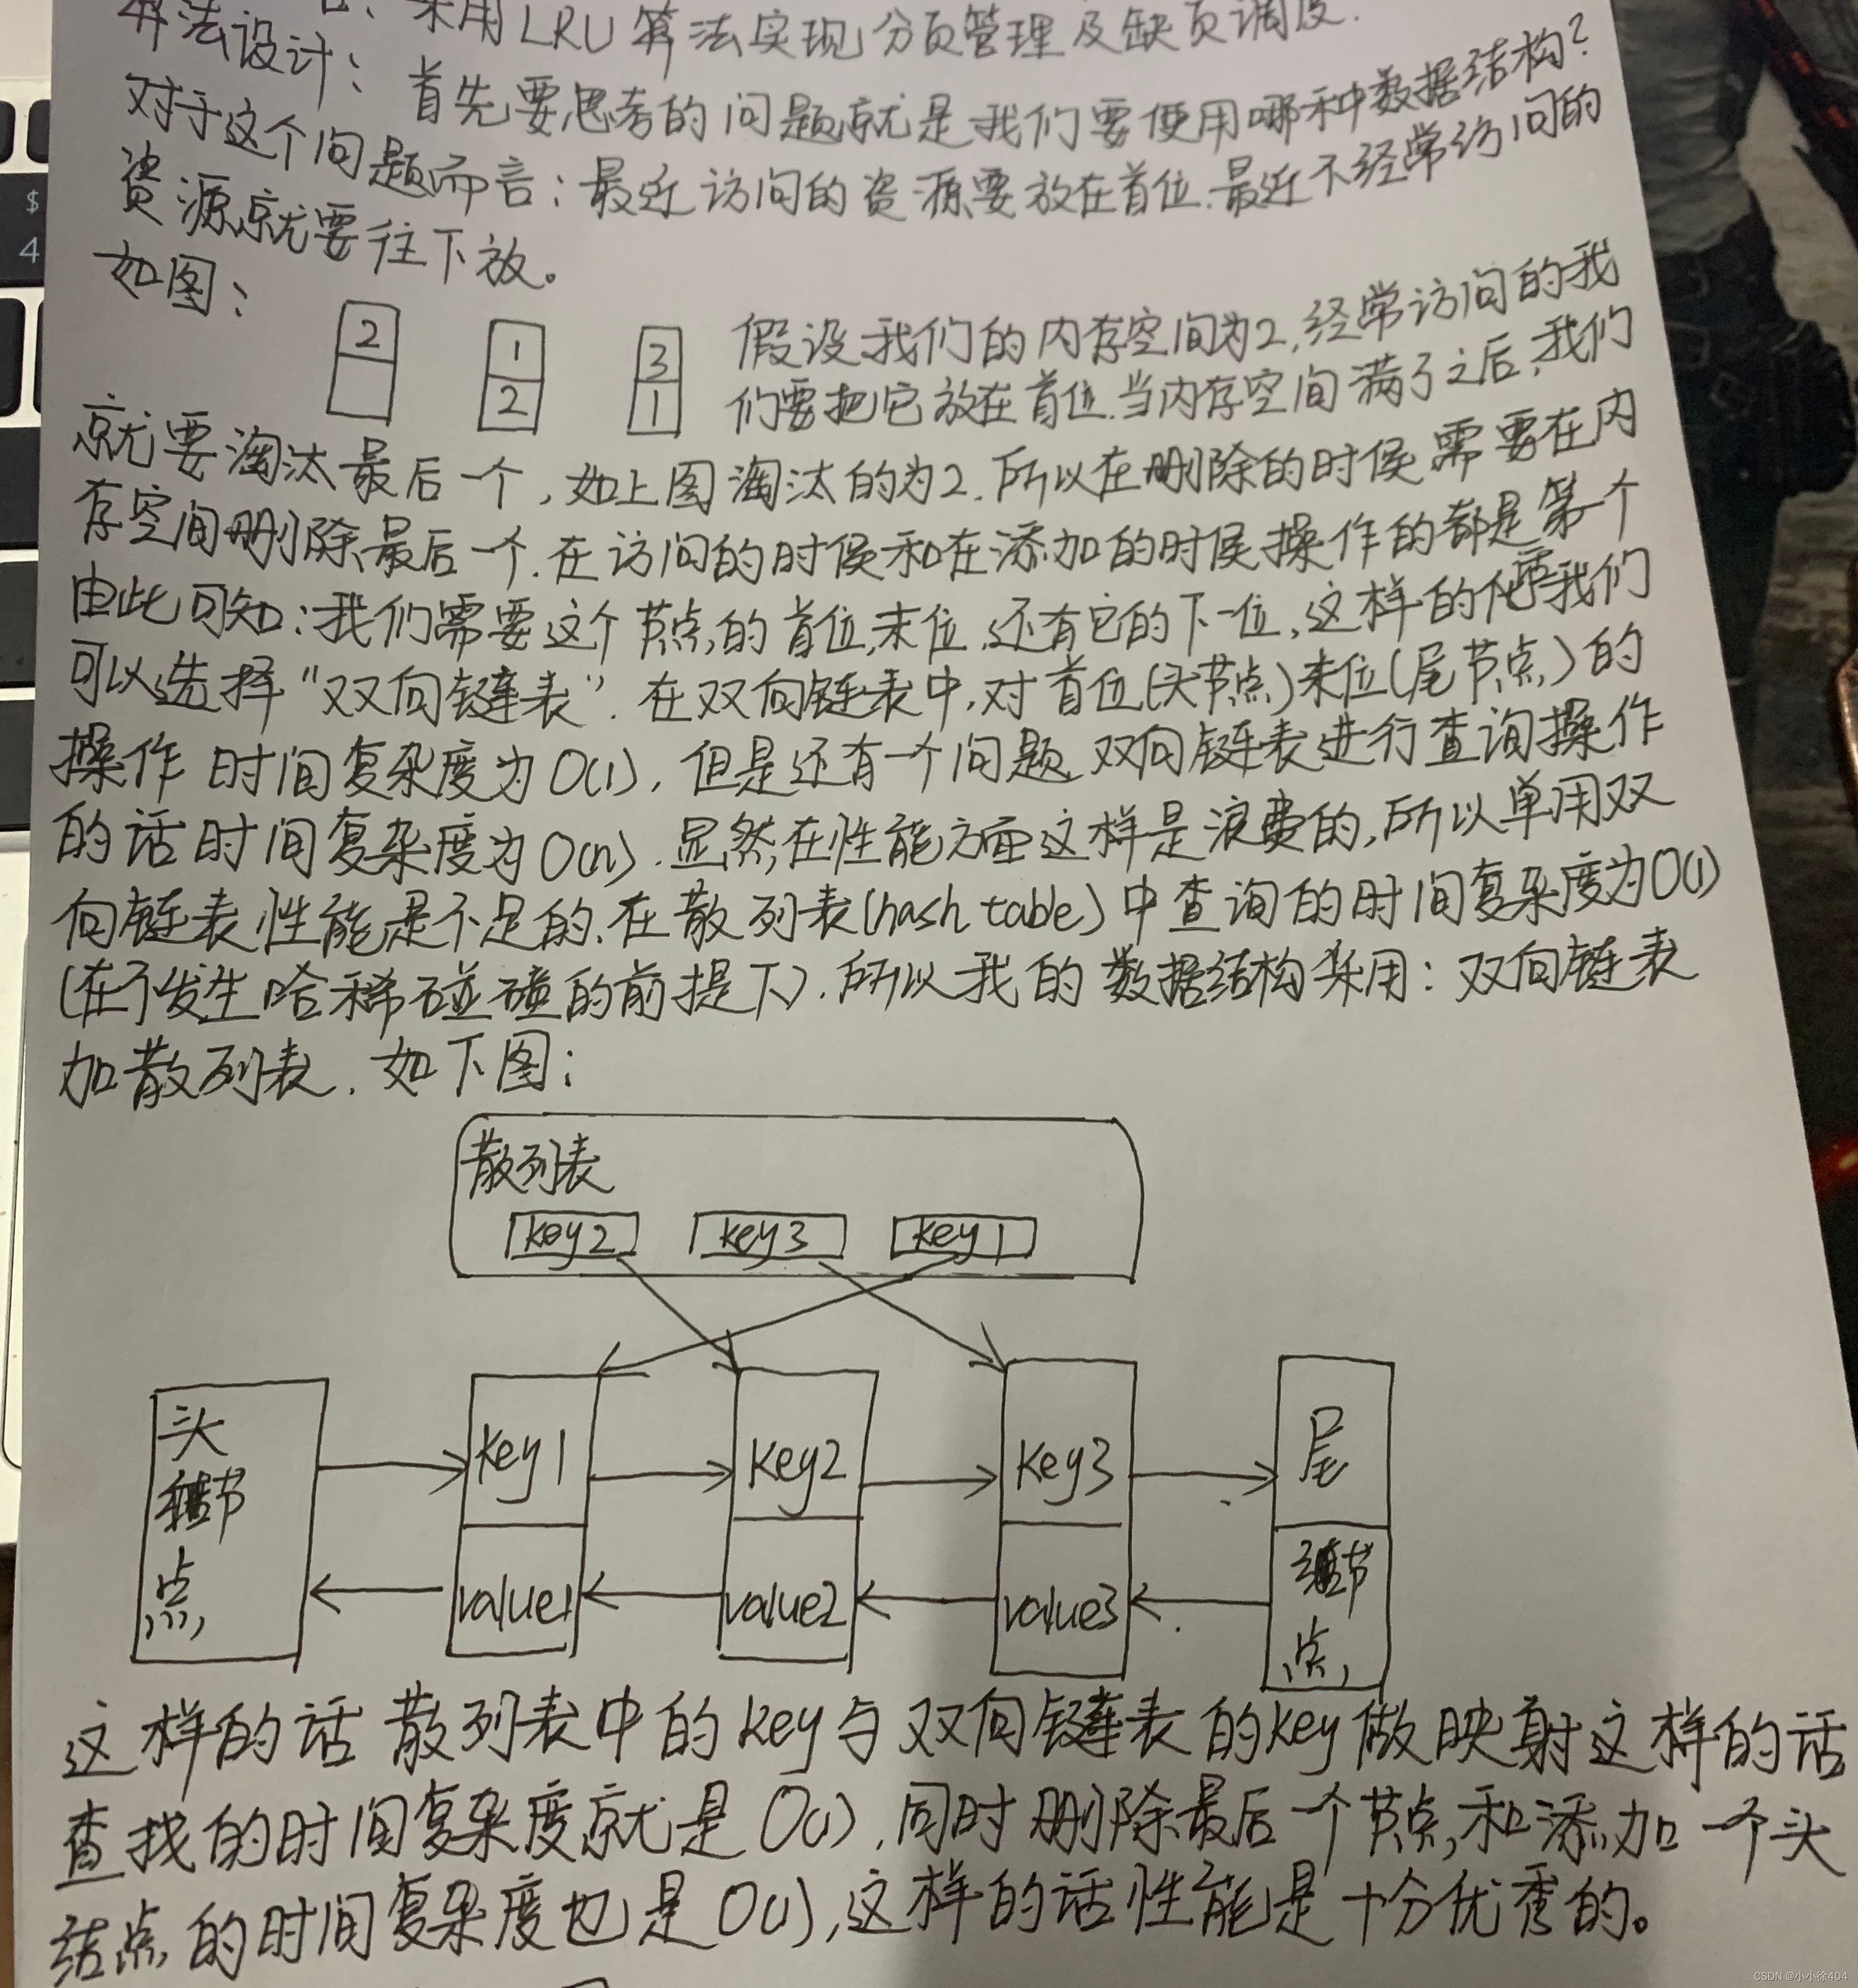 采用LRU算法实现分页管理及缺页调度.
算法设计：首先要思考的问题就是我们要使用哪种数据结构？
对于这个问题而言：最近访问的资源要放在首位.最近不经常访问的
资源就要往下放。
如图：
2 1 3
2 1
假设我们的内存空间为2,经常访问的我
们要把它放在首位.当内存空间满了之后,我们
就要淘汰最后一个,如上图淘汰的为2.所以在删除的时候需要在内
存空间删除最后一个.在访问的时候和在添加的时候操作的都是第个
由此可知：我们需要这个节点的首位,末位,还有它的下一位,这样的 我们
可以选择“双向链表”.在双向链表中,对首位(头节点)末位(尾节点)的
操作时间复杂度为O(1),但是还有一个问题,双向链表进行查询操作
的话时间复杂度为O(n).显然,在性能方面这样是浪费的,所以单用双
向链表性能是不足的.在散列表(hash table)中查询的时间复杂度为O(1)
(在不发生哈稀碰碰的前提下).所以我的数据结构采用：双向链表
加散列表.如下图：
散列表
key2 key3 key1
头节点 key1 key2 key3 尾节点
value1 value2 value3
这样的话散列表中的key与双向链表的key做映射这样的话
查找的时间复杂度就是O(1),同时删除最后一个节点,和添加一个头
结点的时间复杂度也是O(1),这样的话性能是十分优秀的。
$
4
CSDN @小小徐404